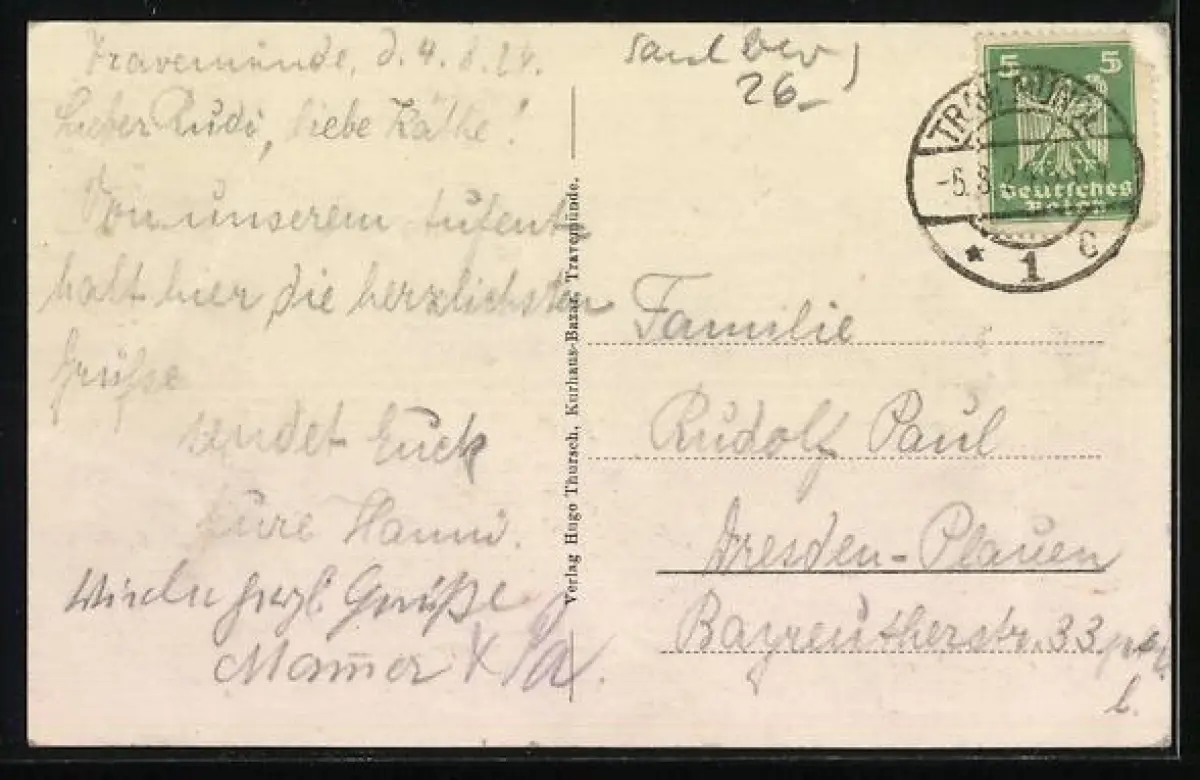 Travemünde, d. 4. 8. 24.
Lieber Rudi, liebe Käthe!
Von unserem Aufent-
halt hier die herzlichsten
Grüße
sendet Euch
Eure Hanni.
herzl. Grüße
26.–
5 5
Deutsches
Reich
TRAVEMÜNDE
* 1 c
Verlag Hugo Thursch, Kurhaus-Bazar, Travemünde.
Familie
Rudolf Paul
Dresden-Plauen
Bayreutherstr. 33